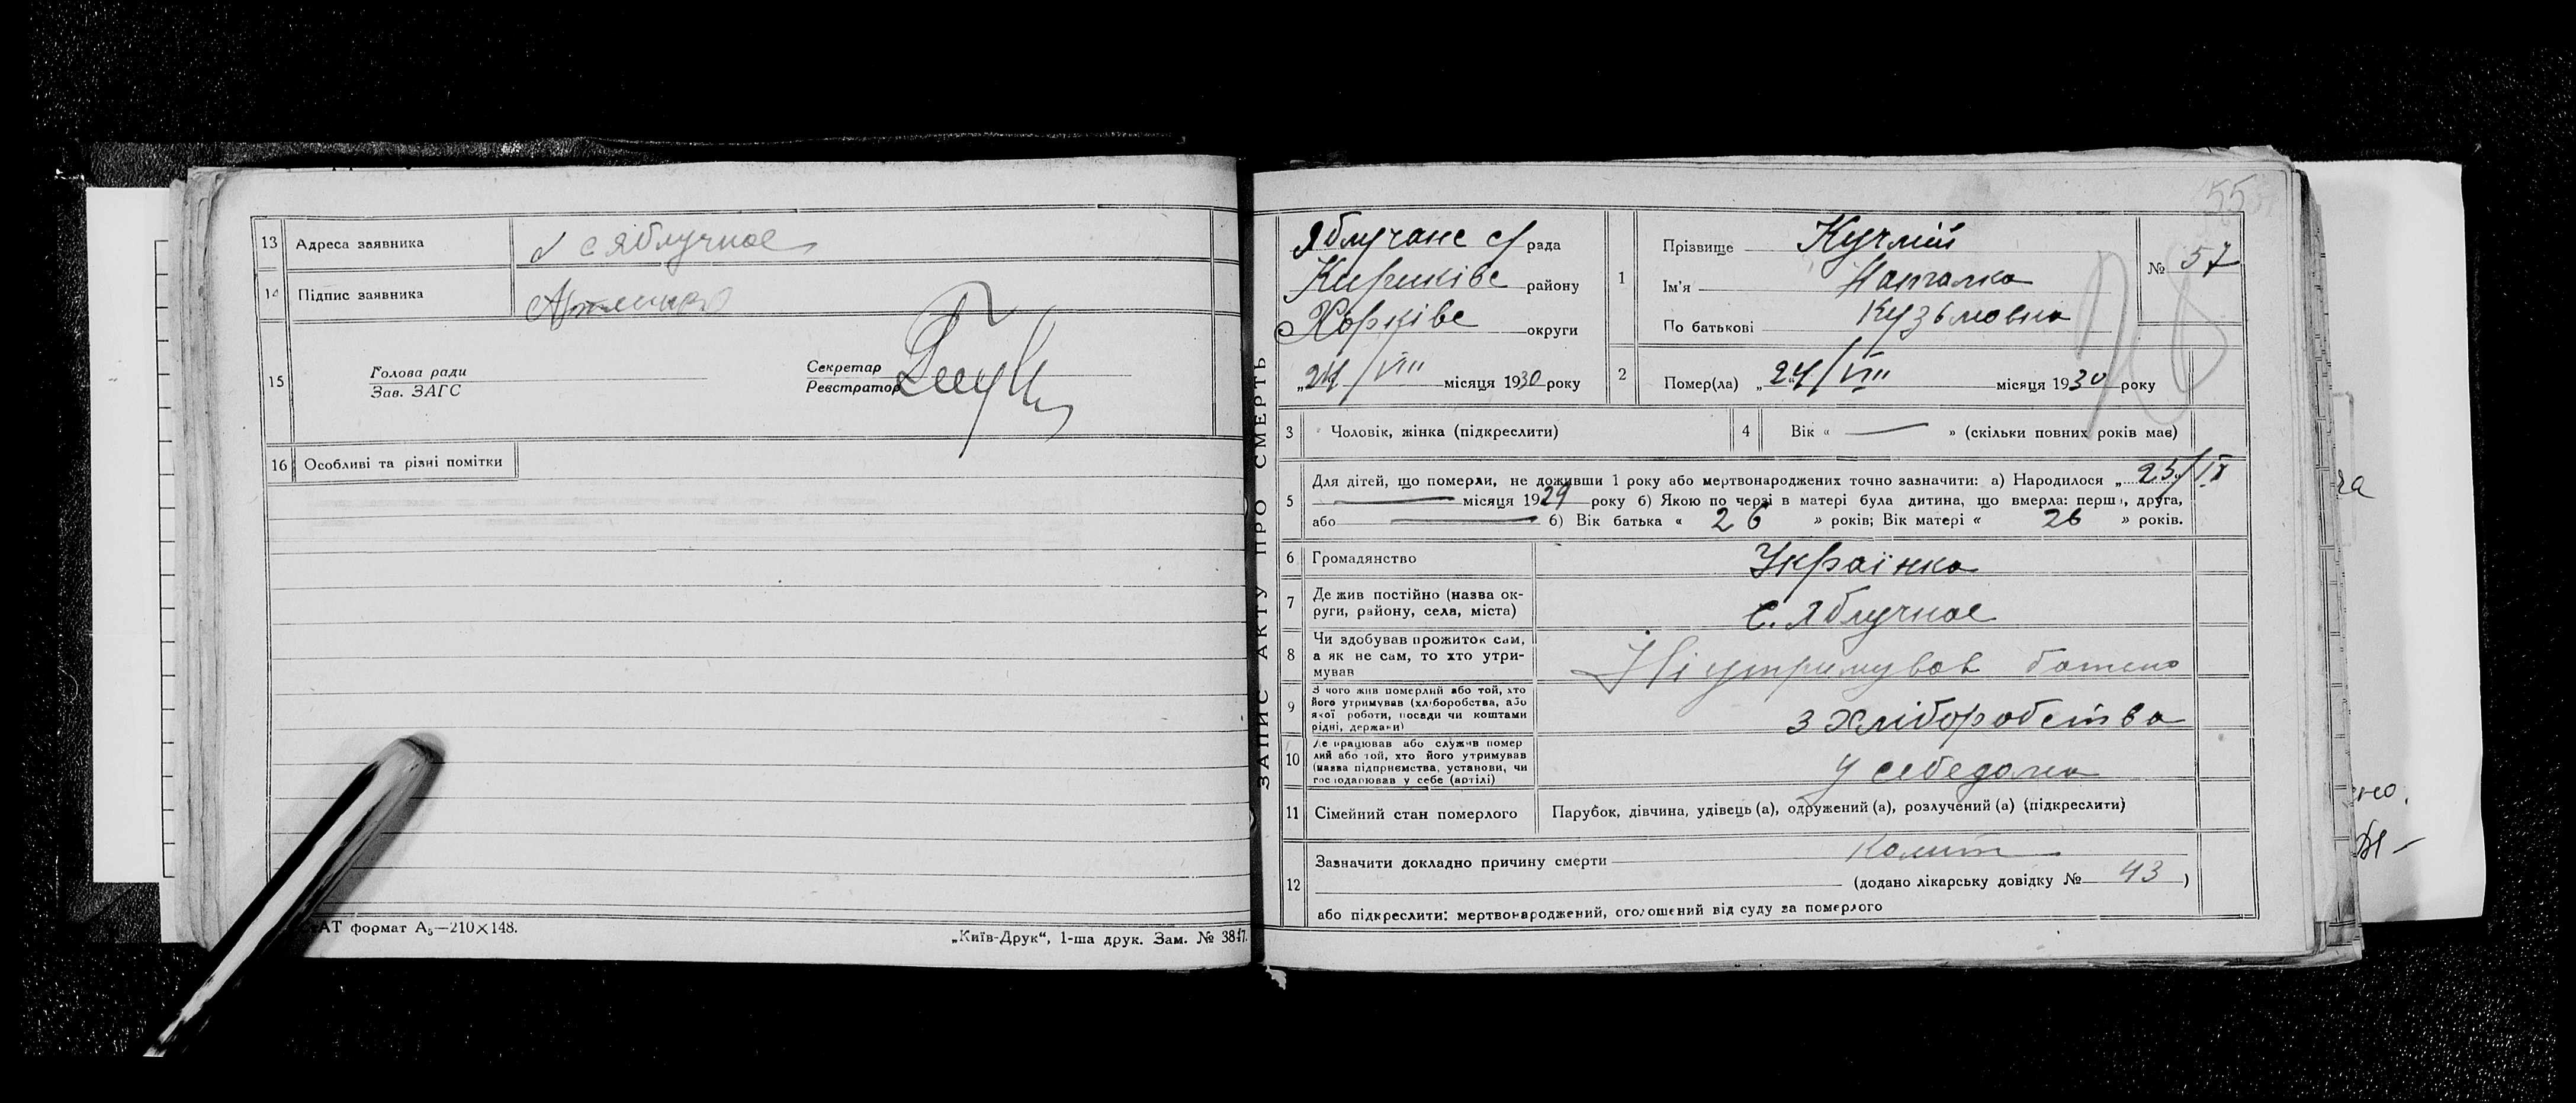 13 Адреса заявника с Яблучное
14 Підпис заявника
15 Голова ради
Зав. ЗАГС
Секретар
Реєстратор
16 Особливі та різні помітки
формат А₅—210×148.
„Київ-Друк“, 1-ша друк. Зам. № 3847.
ЗАПИС АКТУ ПРО СМЕРТЬ
55
Яблучане с/рада
Кириківе району
Харківе округи
„24/VIII місяця 1930 року
1 Прізвище Кучмій
Ім'я Наталка
По батькові Кузьмовна
№ 57
2 Помер(ла) „24/VIII місяця 1930 року
3 Чоловік, жінка (підкреслити)
4 Вік « — » (скільки повних років має)
5 Для дітей, що померли, не доживши 1 року або мертвонароджених точно зазначити: а) Народилося „ 25/IX
місяця 1929 року б) Якою по черзі в матері була дитина, що вмерла: перша, друга,
або — б) Вік батька « 26 » років; Вік матері « 26 » років.
6 Громадянство Українка
7 Де жив постійно (назва ок-
руги, району, села, міста) с. Яблучное
8 Чи здобував прожиток сам,
а як не сам, то хто утри-
мував Ні утримував батько
9 З чого жив померлий або той, хто
його утримував (хліборобства, або
якої роботи, посади чи коштами
рідні, держави) з хліборобства
10 Де працював або служив помер
лий або той, хто його утримував
(назва підприємства, установи, чи
господарював у себе (артілі) у себе дома
11 Сімейний стан померлого Парубок, дівчина, удівець (а), одружений (а), розлучений (а) (підкреслити)
12 Зазначити докладно причину смерти Колит
(додано лікарську довідку № 43 )
або підкреслити: мертвонароджений, оголошений від суду за померлого